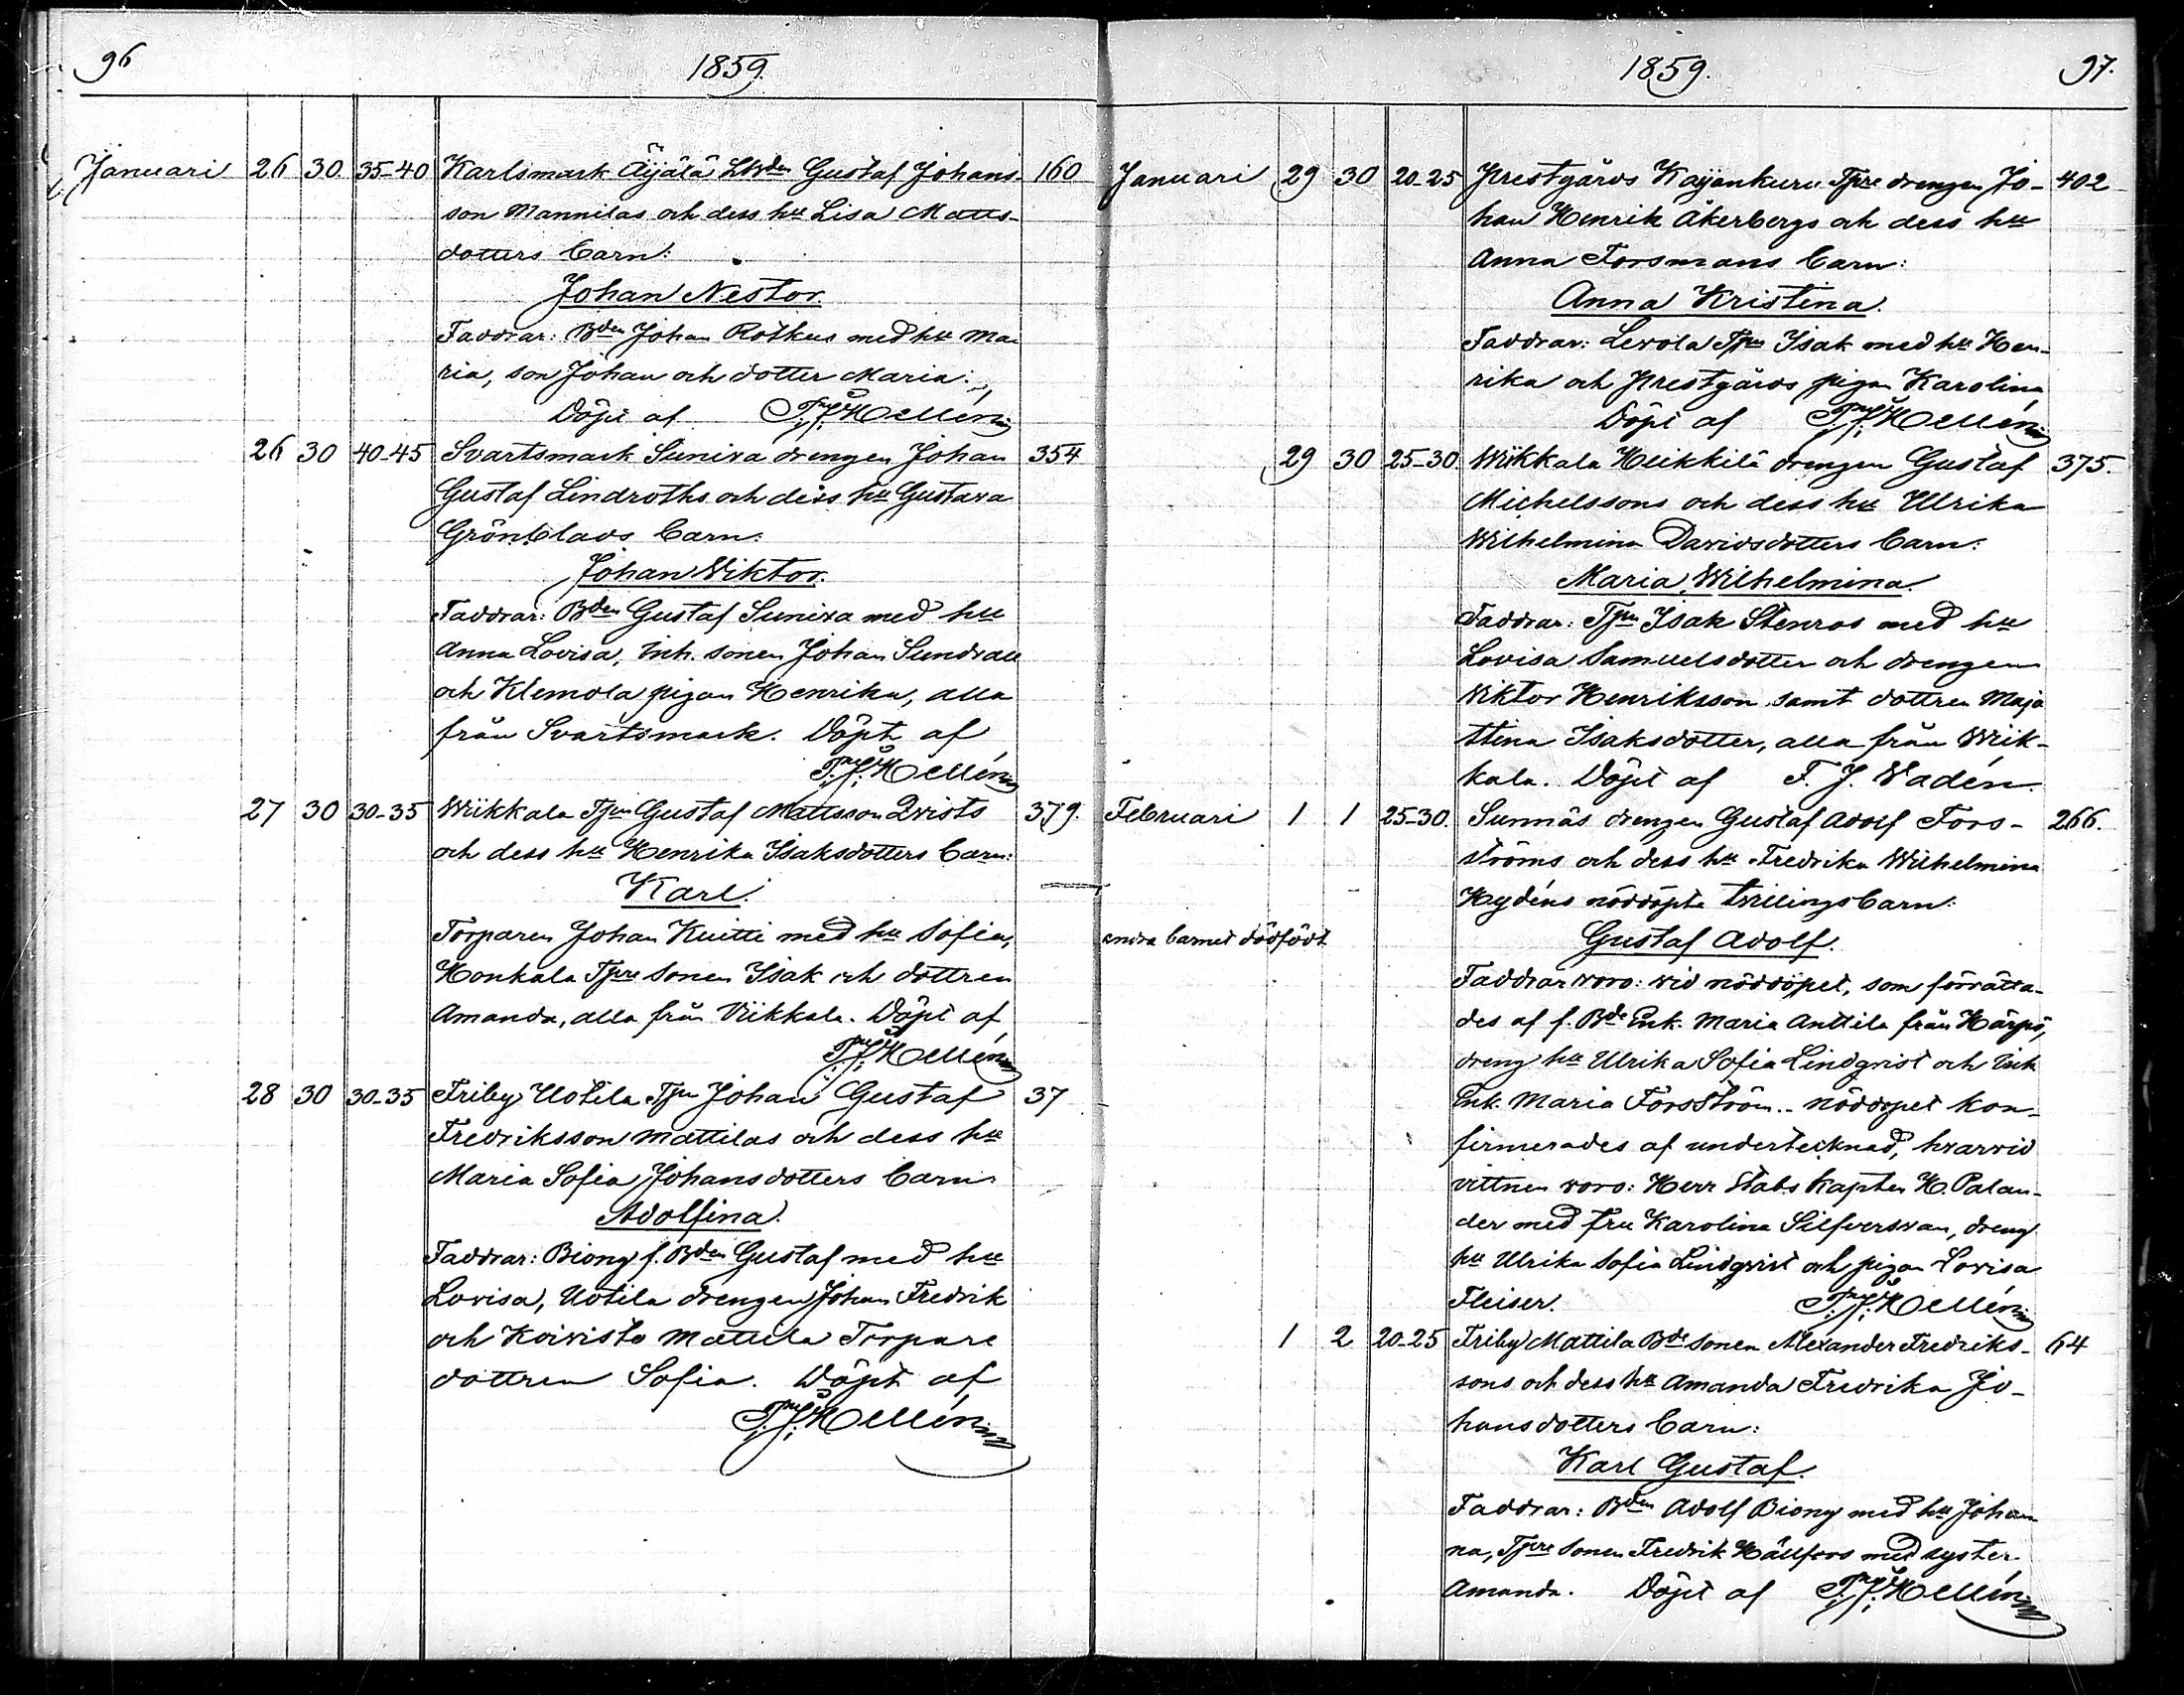 96
1859.
Januari 26 30. 35-40 Karlsmark Äijälä Lbden Gustaf Johans- 160
son Mannilas och dess hu Lisa Matts-
dotters barn:
Johan Nestor.
Faddrar: Bden Johan Rotkus med hu Ma
ria, son Johan och dotter Maria.
Döpt af Hellén
26 30 40-45 Svartsmark Suniva drengen Johan 354
Gustaf Lindroths och dess hu Gustava
Grönblads barn:
Johan Wiktor.
Faddrar: Bden Gustaf Suniva med hu
Anna Lovisa, Inh. sonen Johan Sundvall
och Klemola pigan Henrika, alla
från Svartsmark. Döpt af
Hellén
27 30 30-35 Wiikkala Tpn Gustaf Mattsson Qvists 379.
och dess hu Henrika Isaksdotters barn:
Karl.
Torparen Johan Kuitti med hu Sofia,
Honkala Tpre sonen Isak och dottren
Amanda, alla från Viikkala. Döpt af
Hellén
28 30 30-35 Friby Uotila Tpn Johan Gustaf 37
Fredriksson Mattilas och dess hu
Maria Sofia Johansdotters barn
Adolfina.
Faddrar: Biong f. Bden Gustaf med hu
Lovisa, Uotila drengen Johan Fredrik
och Koivisto Mattila Torpare
dottren Sofia. Döpt af
Hellén
1859.
97.
Januari 29 30 20-25 Prestgårds Kaijankuru Tpre drengen Jo- 402
han Henrik Åkerbergs och dess hu
Anna Forsmans barn:
Anna Kristina.
Faddrar: Levola Tpn Isak med hu Hen-
rika och Prestgårds pigan Karolina
Döpt af Hellén
29 30 25-30. Wiikkala Heikkilä drengen Gustaf 375.
Michelssons och dess hu Ulrika
Wilhelmina Davidsdotters barn:
Maria Wilhelmina.
Faddrar: Tpn Isak Stenros med hu
Lovisa Samuelsdotter och drengen
Viktor Henriksson samt dottren Maja
Stina Isaksdotter, alla från Wiik-
kala. Döpt af F. J. Wadén.
Februari 1 1 25-30. Sunnäs drengen Gustaf Adolf Fors- 266.
ströms och dess hu Fredrika Wilhelmina
Hydéns nöddöpta tvillingsbarn:
andra barnet dödfödt
Gustaf Adolf.
Faddrar woro: vid nöddöpet, som förrätta-
des af f. Bde Enk. Maria Anttila från Härpö,
dreng hu Ulrika Sofia Lindqvist och Inh
Enk. Maria Forsström.- nöddöpet kon-
firmerades af undertecknad, hvarvid
vittnen woro: Herr Stabs Kapten H. Palan-
der med fru Karolina Silfversvan, dreng
hu Ulrika Sofia Lindqvist och pigan Lovisa
Fleiser. Hellén
1 2 20-25 Friby Mattila Bde sonen Alexander Fredriks- 64
sons och dess hu Amanda Fredrika Jo-
hansdotters barn:
Karl Gustaf.
Faddrar: Bden Adolf Biong med hu Johan
na, Tpre sonen Fredrik Hällfors med syster
Amanda. Döpt af Hellén